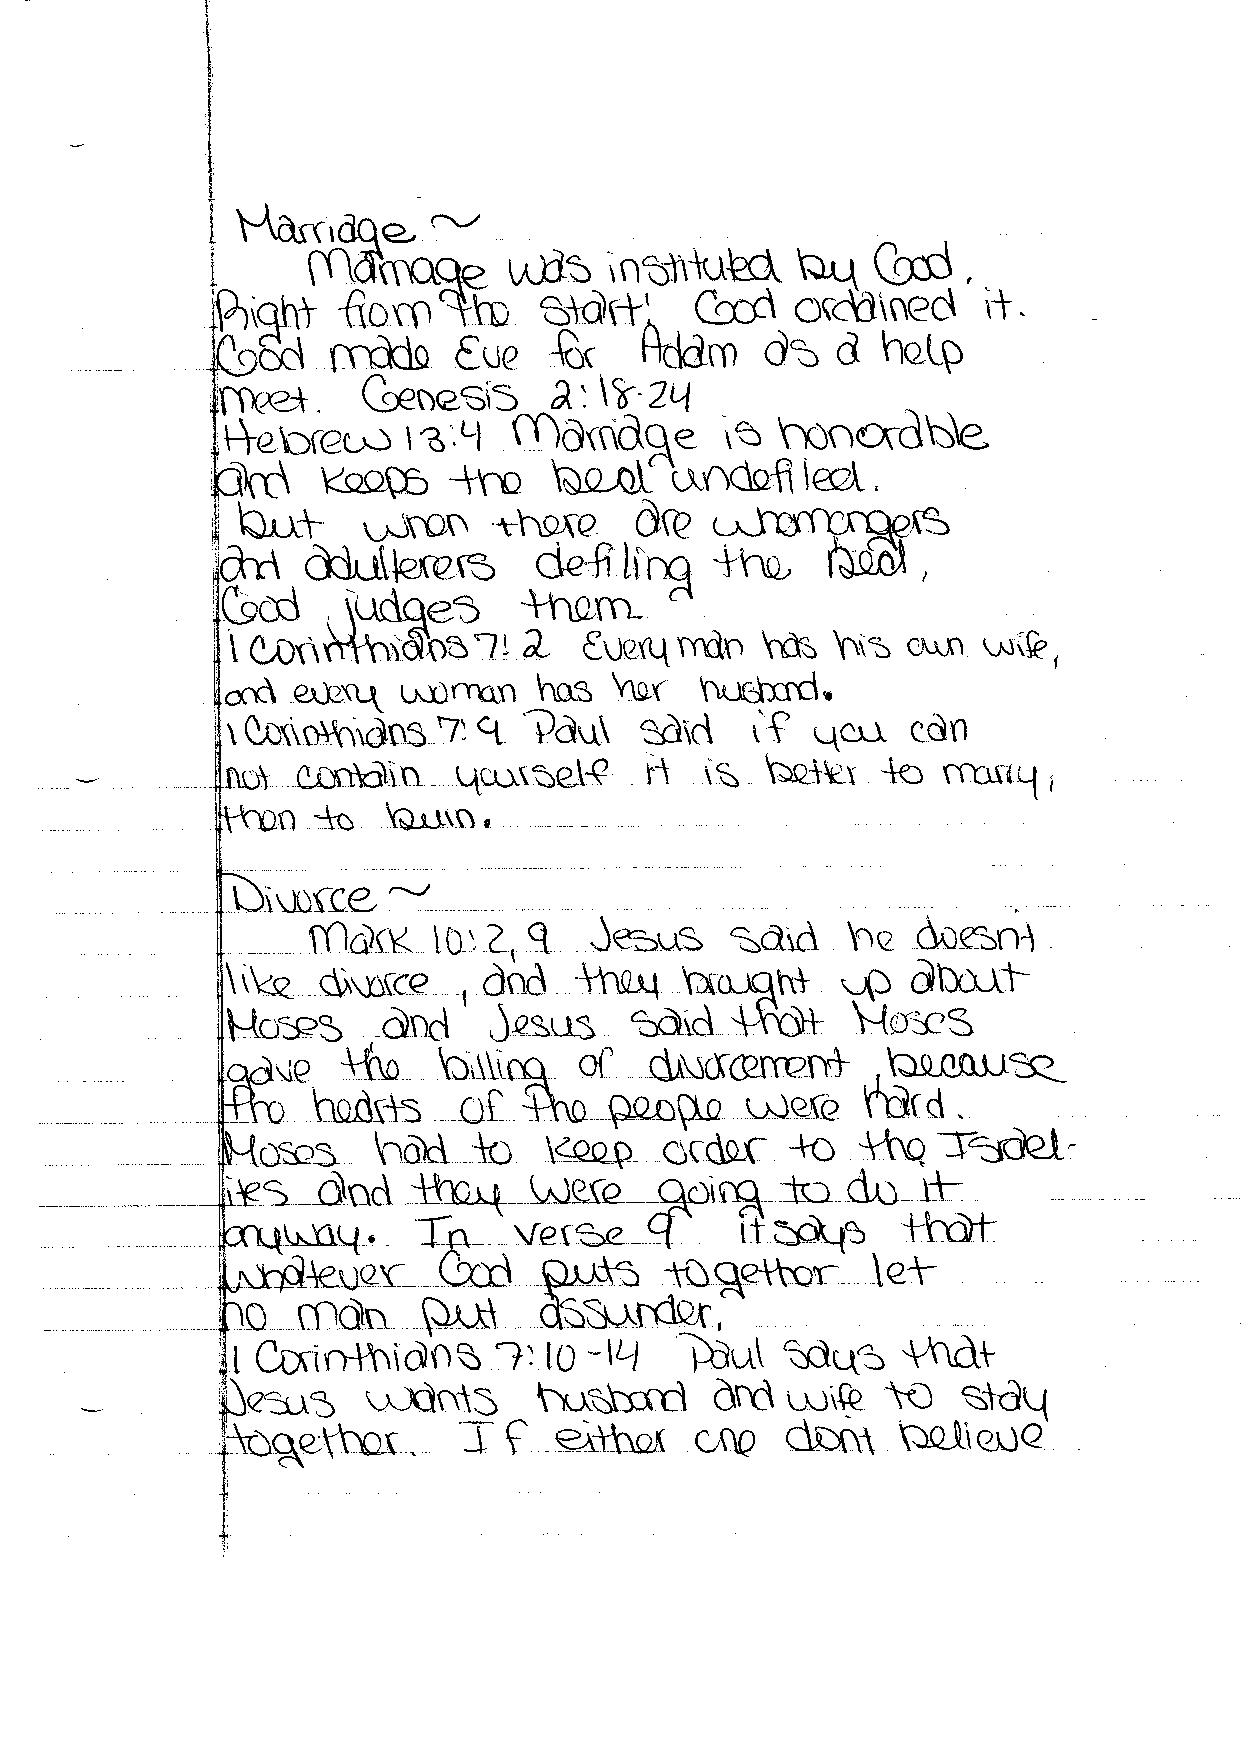 Marriage ~
Marriage was instituted by God.
Right from the start! God ordained it.
God made Eve for Adam as a help
meet. Genesis 2:18-24
Hebrew 13:4 Marriage is honorable
and keeps the bed undefiled.
but when there are whomongers
and adulterers defiling the bed,
God judges them
1 Corinthians 7:2 Every man has his own wife,
and every woman has her husband.
1 Corinthians 7:9 Paul said if you can
not contain yourself it is better to marry,
then to burn.
Divorce ~
Mark 10:2,9 Jesus said he doesnt
like divorce, and they brought up about
Moses, and Jesus said that Moses
gave the billing of divorcement, because
the hearts of the people were hard.
Moses had to keep order to the Israel-
ites and they were going to do it
anyway. In verse 9 it says that
whatever God puts together let
no man put assunder.
1 Corinthians 7:10-14 Paul says that
Jesus wants husband and wife to stay
together. If either one dont believe